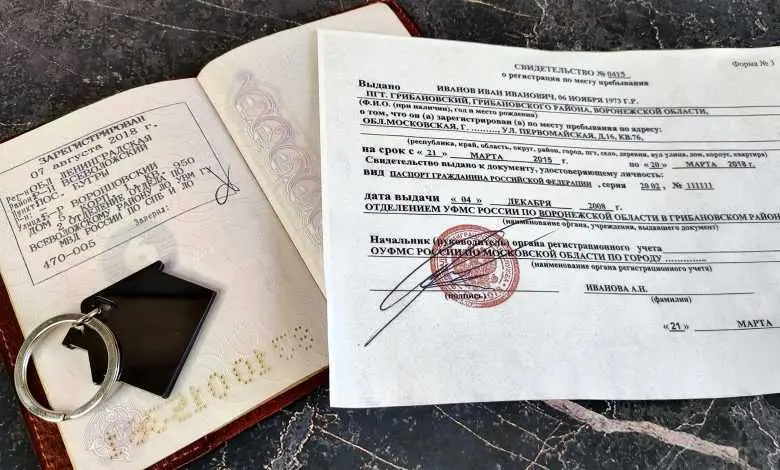 ЗАРЕГИСТРИРОВАН
07 августа 2018 г.
ОБЛ. ЛЕНИНГРАДСКАЯ
Р-Н ВСЕВОЛОЖСКИЙ
ПОС. БУГРЫ
Б-Р ВОРОНЦОВСКИЙ
950
2 ОТДЕЛЕНИЕ ОТДЕЛА ПО
ВСЕВОЛОЖСКОМУ РАЙОНУ
ГУ
МВД РОССИИ ПО СПБ И ЛО
470-005
Заверил:
Форма № 3
СВИДЕТЕЛЬСТВО № 0415
о регистрации по месту пребывания
Выдано ИВАНОВ ИВАН ИВАНОВИЧ, 06 НОЯБРЯ 1973 Г.Р.
ПГТ. ГРИБАНОВСКИЙ, ГРИБАНОВСКОГО РАЙОНА, ВОРОНЕЖСКОЙ ОБЛАСТИ,
(Ф.И.О. (при наличии), год и место рождения)
о том, что он (а) зарегистрирован (а) по месту пребывания по адресу:
ОБЛ.МОСКОВСКАЯ, Г ........., УЛ. ПЕРВОМАЙСКАЯ, Д.16, КВ.76,
(республика, край, область, округ, район, город, пгт, село, деревня, аул улица, дом, корпус, квартира)
на срок с « 21 » МАРТА 2015 г. по « 20 » МАРТА 2018 г.
Свидетельство выдано к документу, удостоверяющему личность:
вид ПАСПОРТ ГРАЖДАНИНА РОССИЙСКОЙ ФЕДЕРАЦИИ , серия 2002 , № 111111
дата выдачи « 04 » ДЕКАБРЯ 2008 г.
ОТДЕЛЕНИЕМ УФМС РОССИИ ПО ВОРОНЕЖСКОЙ ОБЛАСТИ В ГРИБАНОВСКОМ РАЙОН
(наименование органа, учреждения, выдавшего документ)
Начальник (руководитель) органа регистрационного учета
ОУФМС РОССИИ ПО МОСКОВСКОЙ ОБЛАСТИ ПО ГОРОДУ ..........
(наименование органа регистрационного учета)
ИВАНОВА А.Н.
(подпись) (фамилия)
« 21 » МАРТА